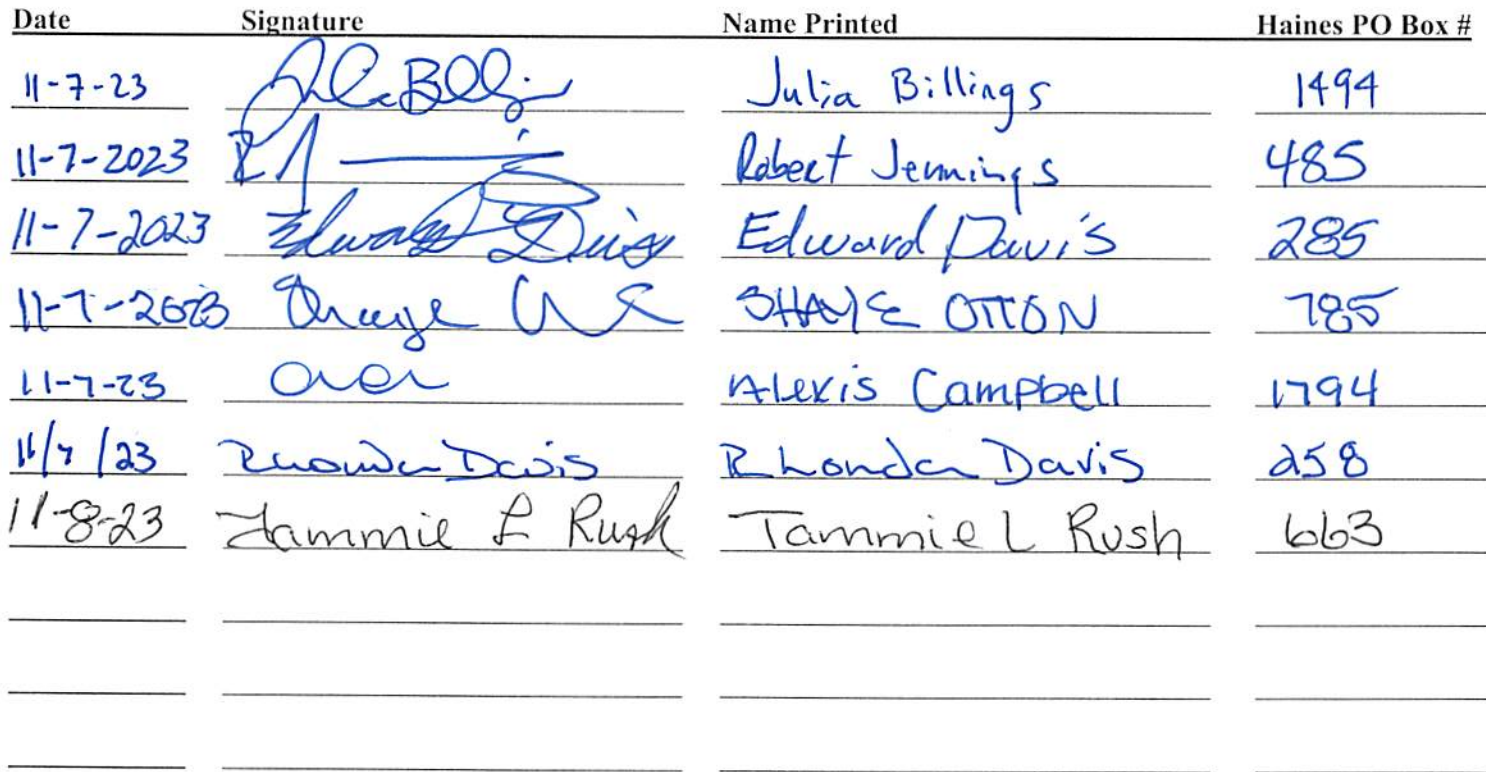 Date Signature Name Printed Haines PO Box #
11-7-23 Julia Billings 1494
11-7-2023 Robert Jennings 485
11-7-2023 Edward Davis Edward Davis 285
11-7-2023 Shaye SHAYE OTTON 785
11-7-23 Alexis Campbell 1794
11/7/23 Rhonda Davis Rhonda Davis 258
11-8-23 Tammie L Rush Tammie L Rush 663